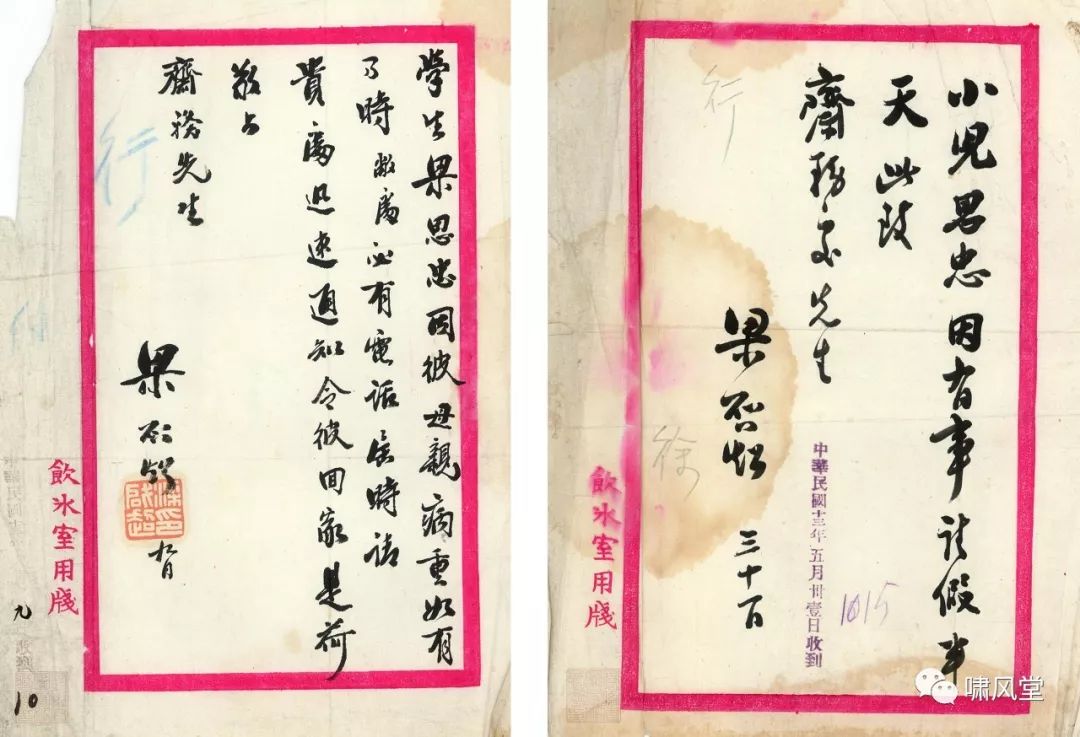 學生梁思忠因彼母親病重如有
不時敝處必有電話屆時請
貴處迅速通知令彼回家是荷
敬上
齋務先生
梁啟超
行
飲冰室用牋
九
10
小兒思忠因有事請假半
天此致
齋務處先生
梁啟超 三十日
中華民國十三年五月卅壹日收到
1015
行
徐
飲冰室用牋
啸风堂